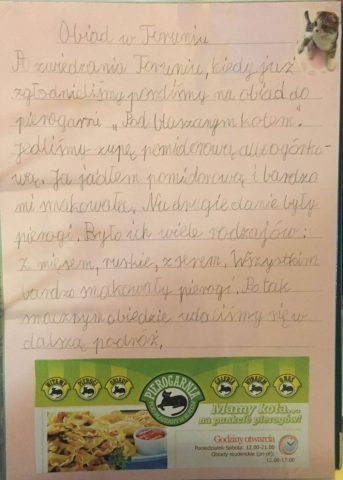 Obiad w Toruniu
A zwiedzania Torunia, kiedy już
zgłodnieliśmy poszliśmy na obiad do
pierogarni „Pod blaszanym kotem".
Jedliśmy zupę pomidorową albo ogórko-
wą. Ja jadłem pomidorową i bardzo
mi smakowała. Na drugie danie były
pierogi. Było ich wiele rodzajów:
Z mięsem, ruskie, z serem. Wszystkim
bardzo smakowały pierogi. Po tak
smacznym obiedzie udaliśmy się w
dalszą podróż.
WITAMY PIEROGI OBIADY PIEROGARNIA GALERIA WYNAJEM O NAS
Mamy kota...
na punkcie pierogów!
Godziny otwarcia
Poniedziałek-Sobota: 12.00-21.00
Obiady studenckie (pn-pt):
12.00-17.00